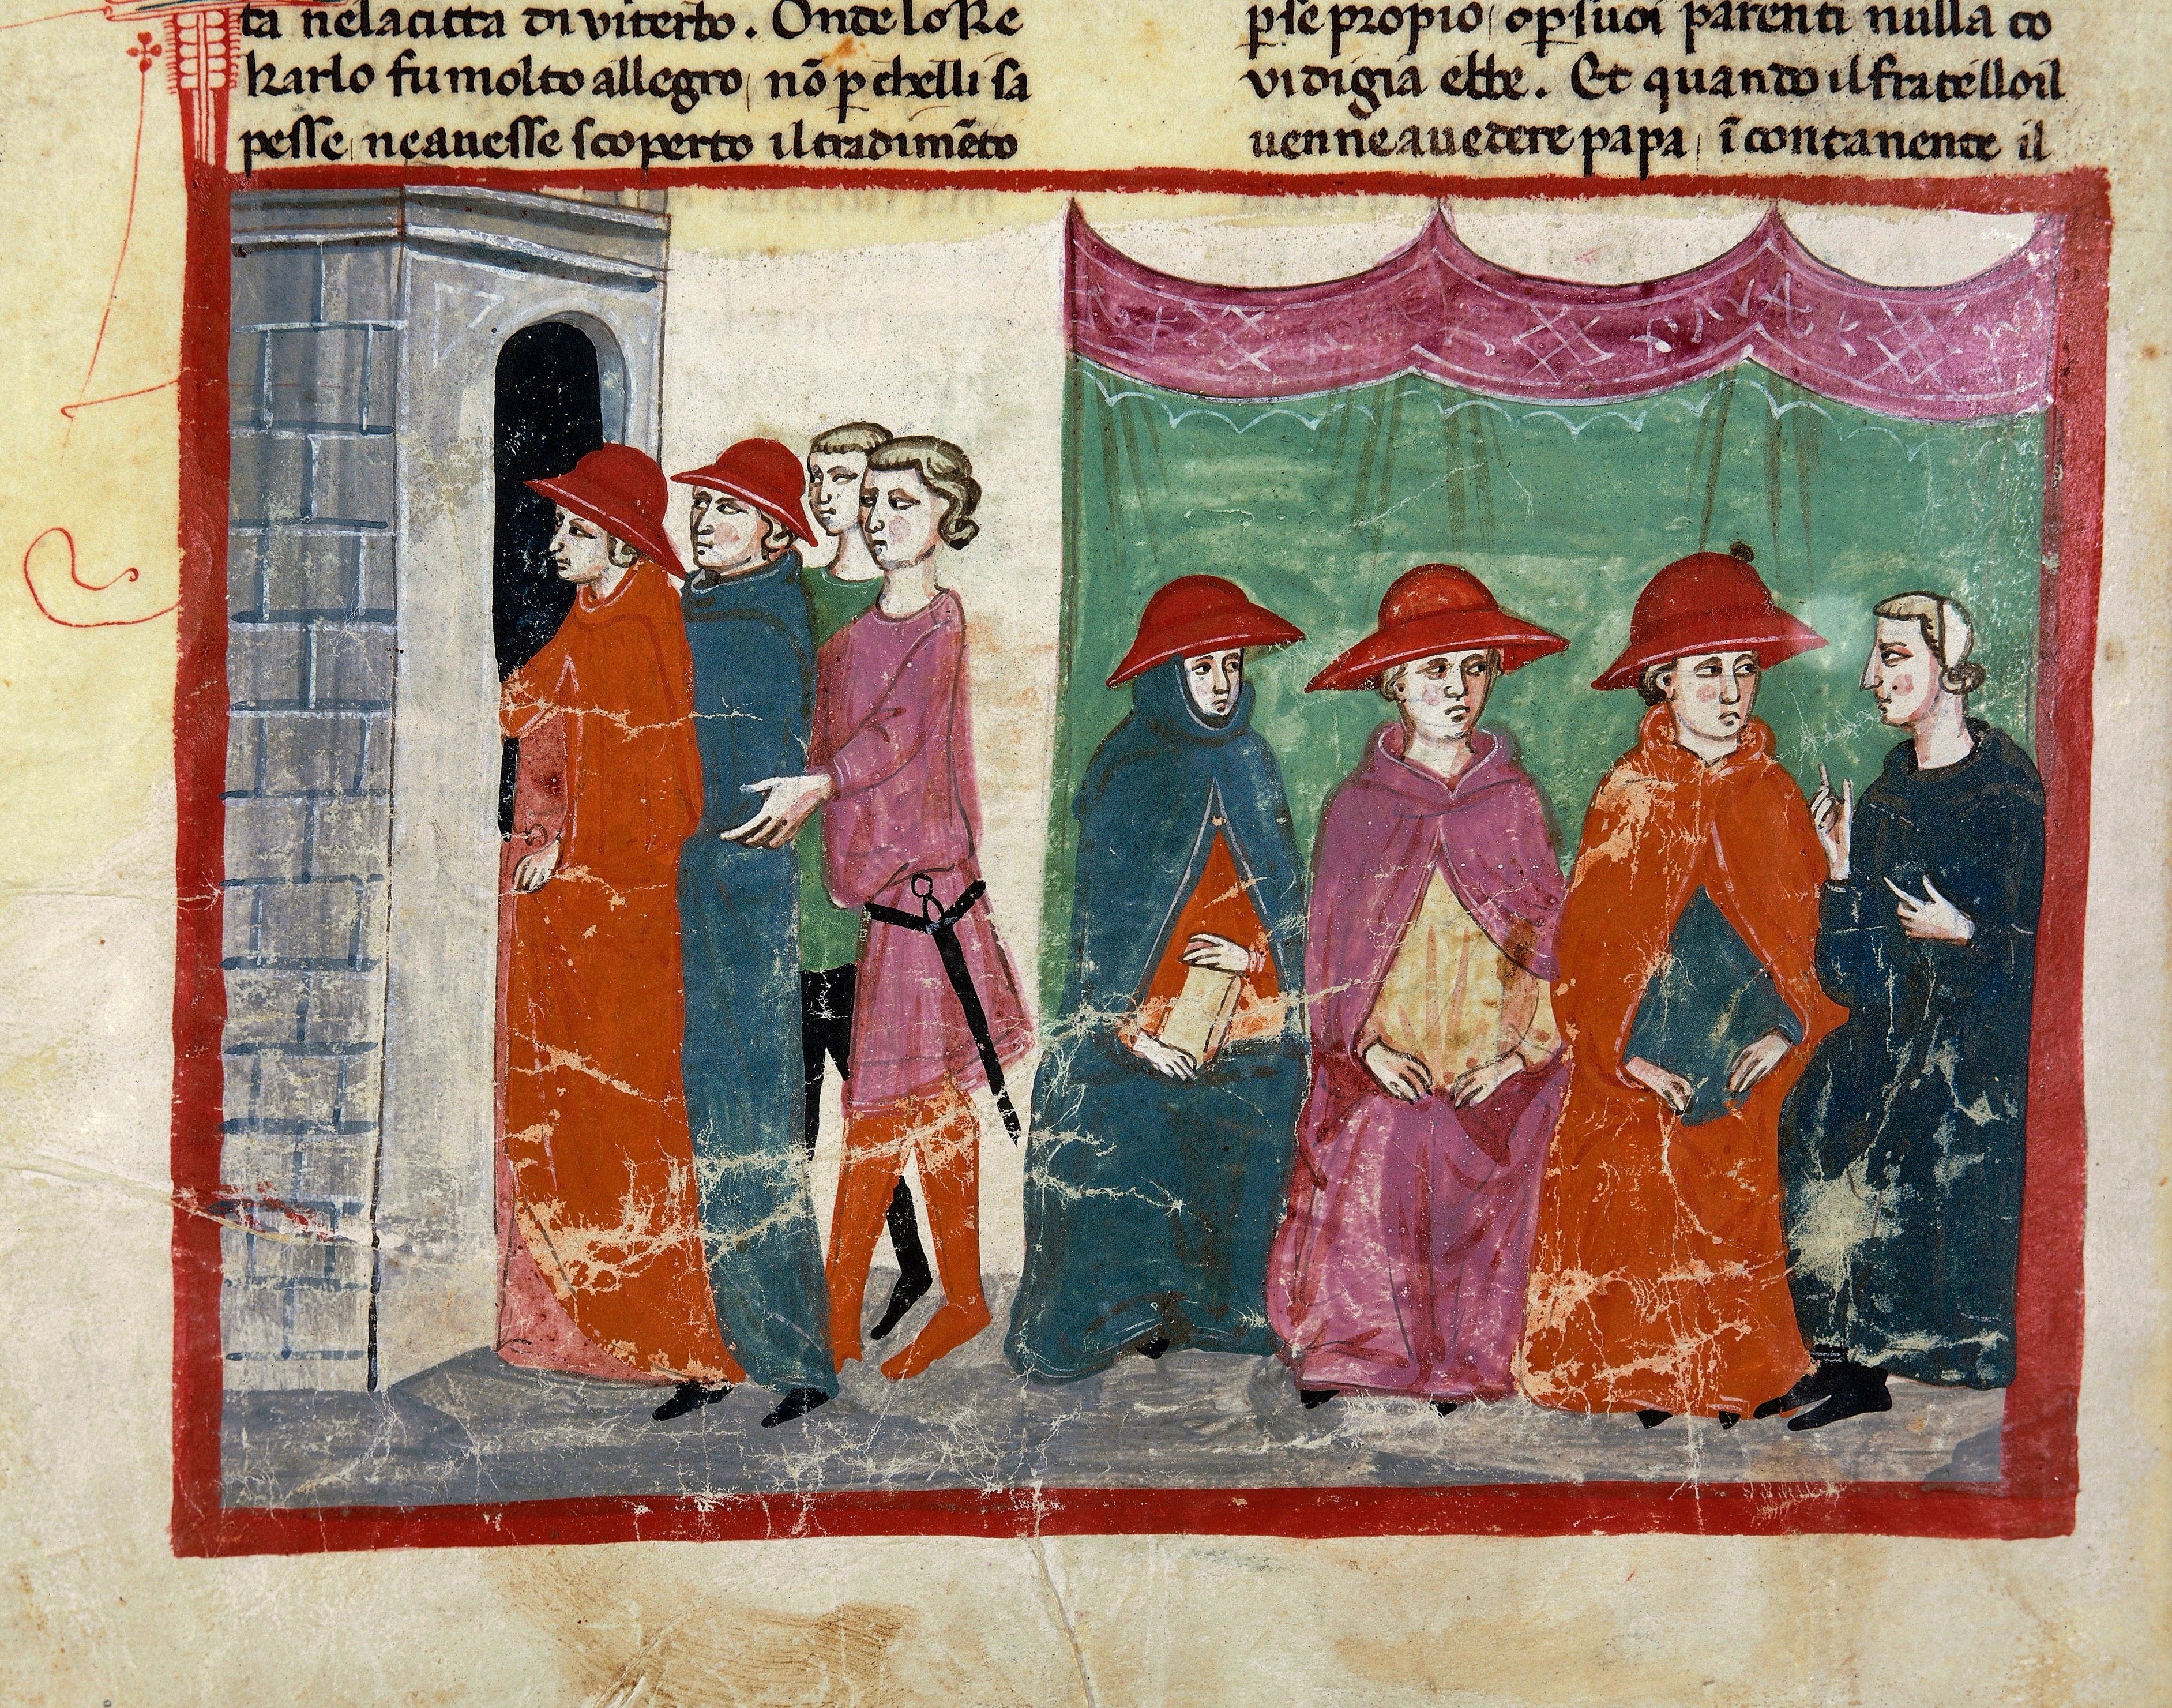 ta nelacitta di viterbo. Onde lo Re
karlo fu molto allegro, nō p chelli sa
pesse, ne avesse scoperto il tradimēto
p se propio, o p suoi parenti nulla co
vidigia ebbe. Et quando il fratello il
venne a vedere papa, ī contanente il